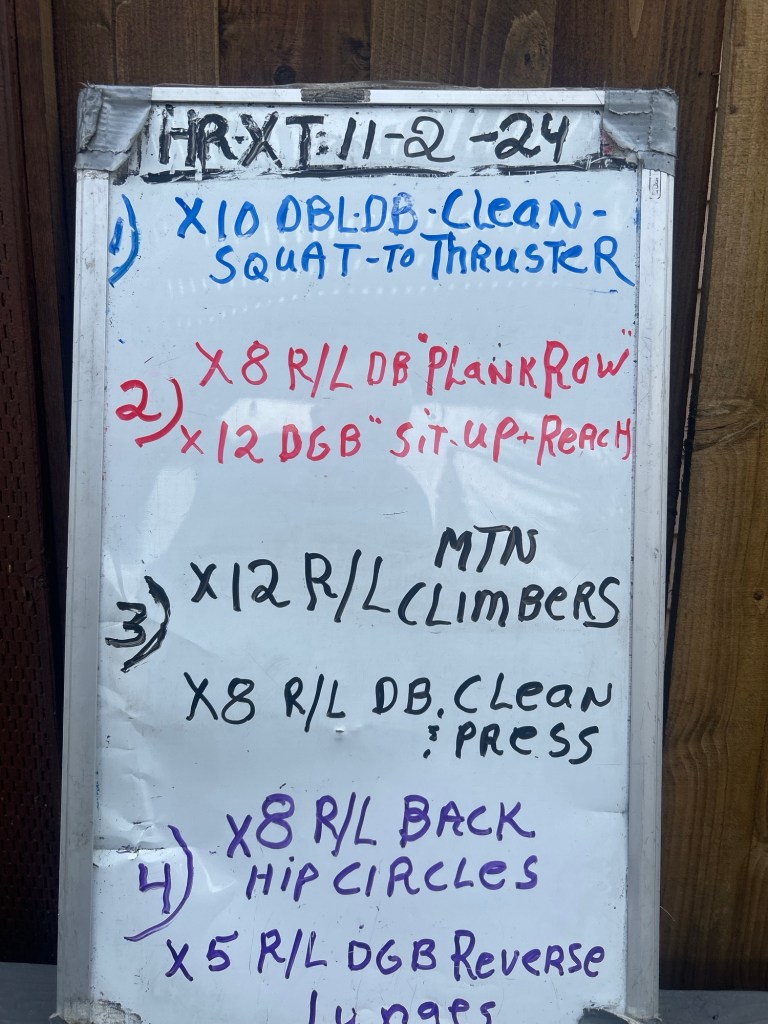 HR-XT: 11-2-24
1) X10 DBL.DB. Clean-
SQUAT-TO THRUSTER
X8 R/L DB "PLANK ROW"
2)
X12 DGB "SIT-UP+REACH
MTN
X12 R/L CLIMBERS
3)
X8 R/L DB. Clean
& PRESS
X8 R/L BACK
4) HIP CIRCLES
X5 R/L DGB Reverse
lunges